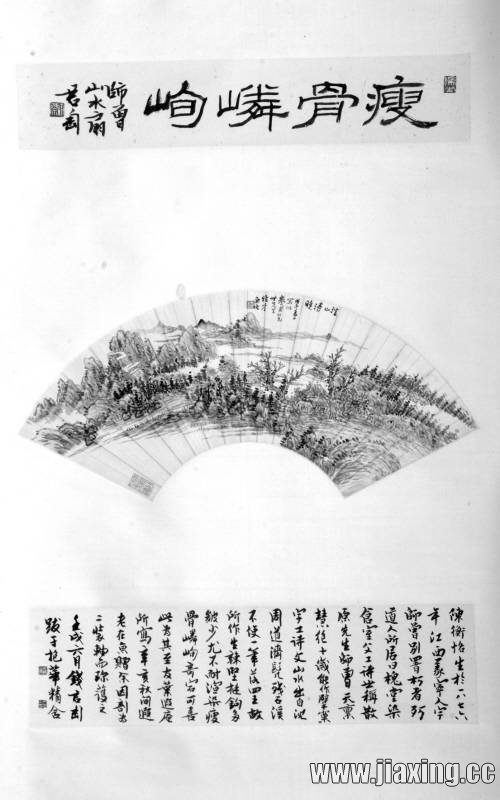 瘦骨嶙峋
師曾
山水扇
君匋
陳衡恪生於一八七六
年江西義寧人字
師曾別署朽者朽
道人所居曰槐堂染
倉室父工詩世稱散
原先生師曾天稟
慧絕十歲能作擘窠
字工詩文山水出自沈
周道濟髡殘石溪
不使一筆落四王故
所作生辣堅挺鈎多
皴少尤不耐渲染瘦
骨嶙峋可喜
此為其至友葉遐庵
所寫辛亥秋間遐
老在余因割出
裝軸而珍護之
壬戌六月錢君匋
跋于抱華精舍
www.jiaxing.cc